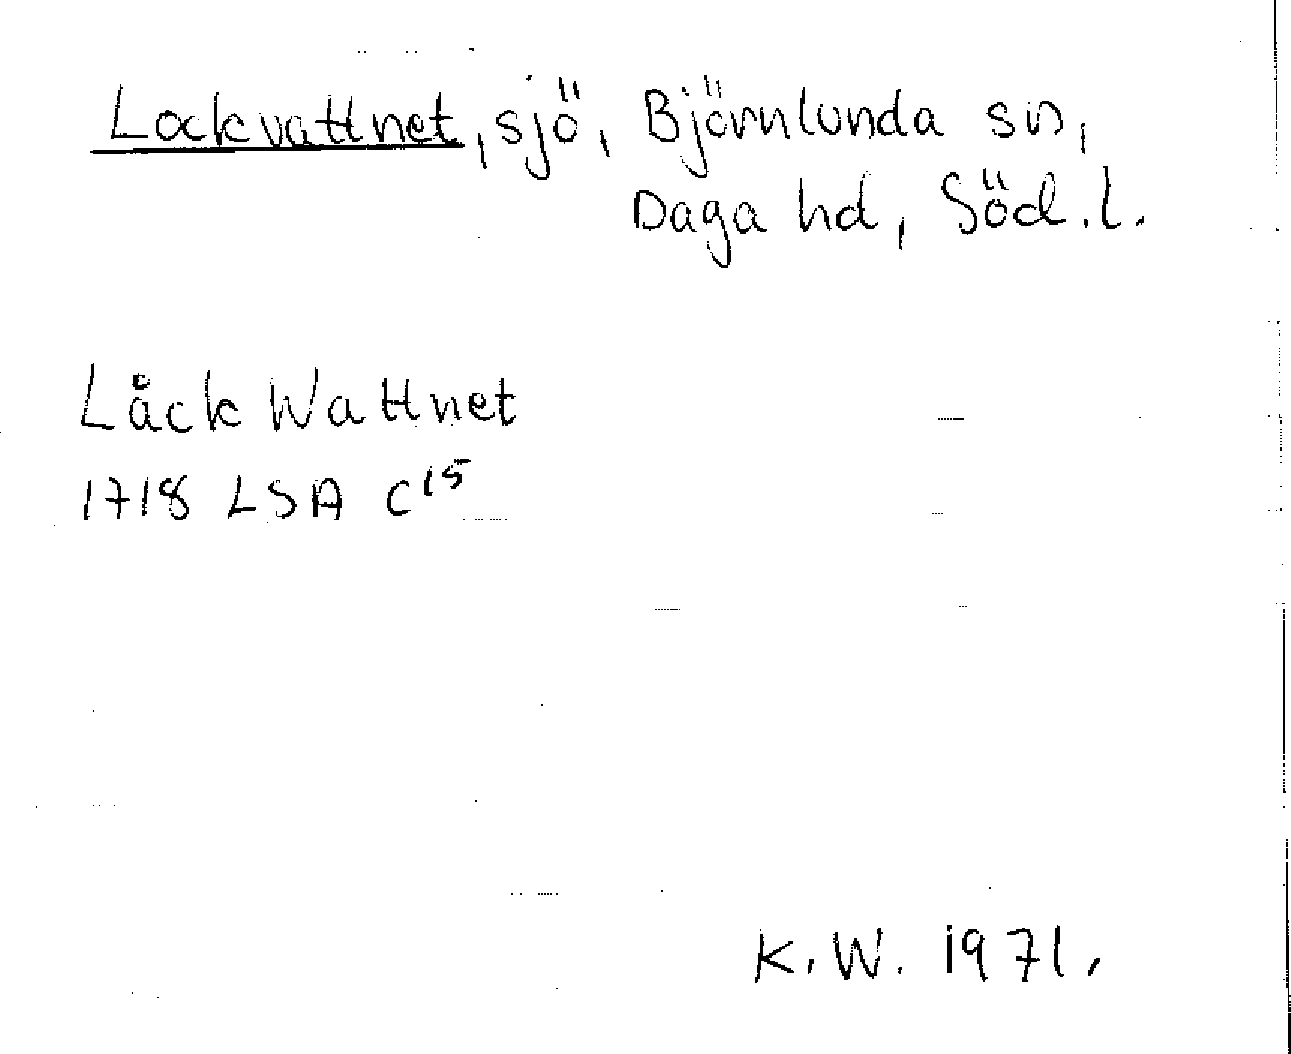 Lockvattnet, sjö, Björnlunda sn,
Daga hd, Söd.l.
Låck Wattnet
1718 LSA C15
K.W. 1971.